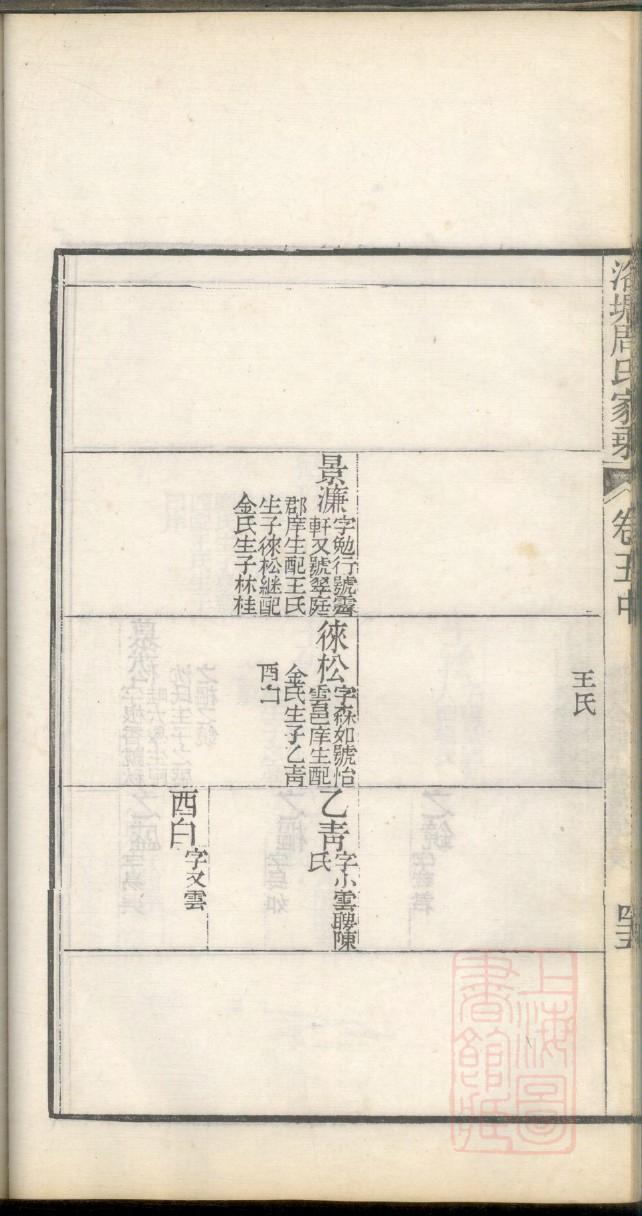 洛塘周氏家乘
卷五中
王氏
景濂
字勉行號霽
軒又號翠庭
郡庠生配王氏
生子徠松継配
金氏生子林桂
徠松
字森如號怡
雲邑庠生配
金氏生子乙靑
酉白
乙靑
字小雲聘陳
氏
酉白
字文雲
上海圖
書館藏